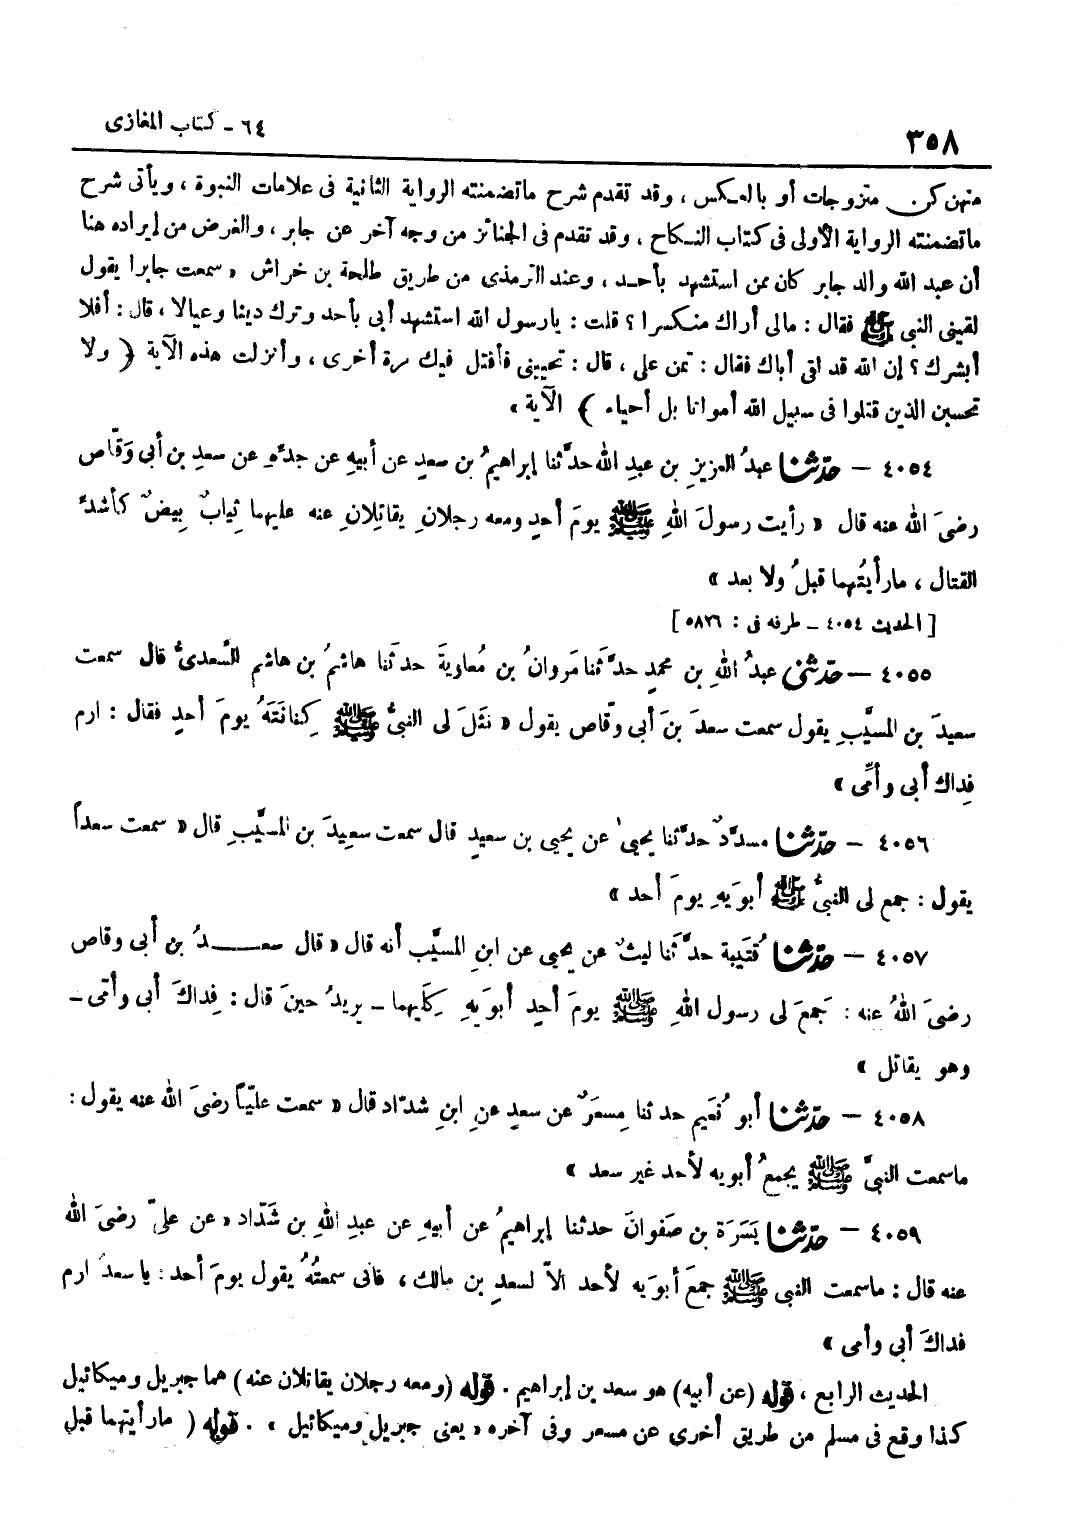 ٦٤ - كتاب المغازى
٣٥٨
منهن كن متزوجات أو بالعكس ، وقد تقدم شرح ماتضمنته الرواية الثانية فى علامات النبوة ، ويأتى شرح
ماتضمنته الرواية الأولى فى كتاب النكاح ، وقد تقدم فى الجنائز من وجه آخر عن جابر ، والغرض من إيراده هنا
أن عبد الله والد جابر كان ممن استشهد بأحد ، وعند الترمذى من طريق طلحة بن خراش « سمعت جابرا يقول
لقينى النبى ﷺ فقال : مالى أراك منكسرا ؟ قلت : يارسول الله استشهد أبى بأحد وترك دينا وعيالا ، قال : أفلا
أبشرك ؟ إن الله قد لقى أباك فقال : تمن على ، قال : تحيينى فأقتل فيك مرة أخرى ، وأنزلت هذه الآية ﴿ ولا
تحسبن الذين قتلوا فى سبيل الله أمواتا بل أحياء ﴾ الآية »
٤٠٥٤ – حدّثنا عبدُ العزيزِ بن عبدِ الله حدَّثنا إبراهيمُ بن سعدٍ عن أبيهِ عن جدِّهِ عن سعدِ بن أبى وَقّاص
رضىَ الله عنه قال « رأيت رسولَ اللهِ ﷺ يومَ أحدٍ ومعه رجلانِ يقاتِلانِ عنه عليهما ثِيابٌ بِيضٌ كأشدِّ
القتال ، مارأيتُهما قبلُ ولا بعد »
[ الحديث ٤٠٥٤ ــ طرفه فى : ٥٨٢٦ ]
٤٠٥٥ – حدّثنى عبدُ اللهِ بن محمدٍ حدَّثَنا مَروانُ بن مُعاويةَ حدثنا هاشمُ بن هاشمٍ السَّعدىُّ قال سمعت
سعيدَ بن المسيَّبِ يقول سمعت سعدَ بنَ أبى وقّاص يقول « نثَلَ لى النبىُّ ﷺ كِنانَتَهُ يومَ أحدٍ فقال : ارمِ
فِداك أبى وأمِّى »
٤٠٥٦ – حدّثنا مسدَّدٌ حدَّثنا يحيىٰ عن يحيى بن سعيدٍ قال سمعت سعيدَ بن المسيَّبِ قال « سمعت سعداً
يقول : جمع لى النبىُّ ﷺ أبوَيهِ يومَ أحد »
٤٠٥٧ – حدّثنا قُتَيبة حدَّثَنا ليثٌ عن يحيى عن ابنِ المسيَّب أنه قال « قال سعدُ بن أبى وقاص
رضىَ اللهُ عنه : جَمعَ لى رسول اللهِ ﷺ يومَ أحدٍ أبوَيهِ كِلَيهما – يريدُ حينَ قال : فِداكَ أبى وأمّى –
وهو يقاتل »
٤٠٥٨ – حدّثنا أبو نُعَيم حدثنا مِسعَرٌ عن سعدٍ عنِ ابنِ شدّاد قال « سمعت عليّاً رضىَ الله عنه يقول :
ماسمعت النبىَّ ﷺ يجمعُ أبويه لأحد غير سعد »
٤٠٥٩ – حدّثنا يَسَرَة بن صَفوانَ حدثنا إبراهيمُ عن أبيهِ عن عبدِ اللهِ بن شَدّاد « عن علىّ رضىَ الله
عنه قال : ماسمعت النبى ﷺ جمعَ أبوَيه لأحد الاّ لسعدِ بن مالك ، فانى سمعتُهُ يقول يومَ أحد : ياسعدُ ارم
فداكَ أبى وأمى »
الحديث الرابع ، قوله (عن أبيه) هو سعد بن إبراهيم . قوله (ومعه رجلان يقاتلان عنه) هما جبريل وميكائيل
كذا وقع فى مسلم من طريق أخرى عن مسعر وفى آخره « يعنى جبريل وميكائيل » . قوله ( مارأيتهما قبل